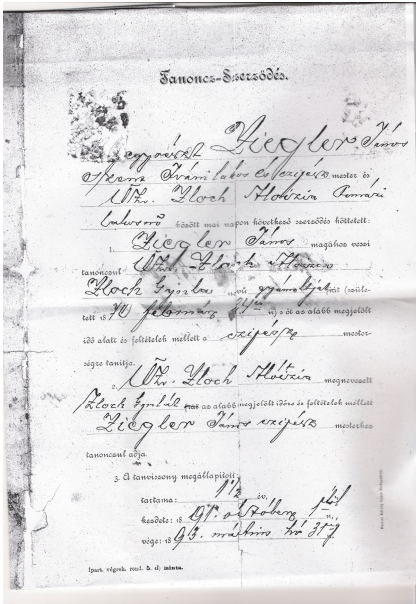 Tanoncz-Szerződés.
egyrészt Ziegler János
Szent Iváni lakos és czipész mester és
Özv. Zloch Aloizia
lakosnő között mai napon következő szerződés köttetett:
1. Ziegler János magához veszi
tanonczul Özv. Zloch
Zloch Gyula nevű gyámoltját (szüle-
tett 18 februar n) s őt az alább megjelölt
idő alatt és feltételek mellett a czipész mester-
ségre tanitja.
2. Özv. Zloch Aloizia megnevezett
Zloch Gyulát fiát az alább megjelölt időre és feltételek mellett
Ziegler János czipész mesterhez
tanonczul adja.
3. A tanviszony megállapított:
tartama: 1 1/2 év,
kezdete: 18 91. október 1 től
vége: 18 93. mártius hó 31 ig
Ipart. végreh. rend. 5. d) minta.